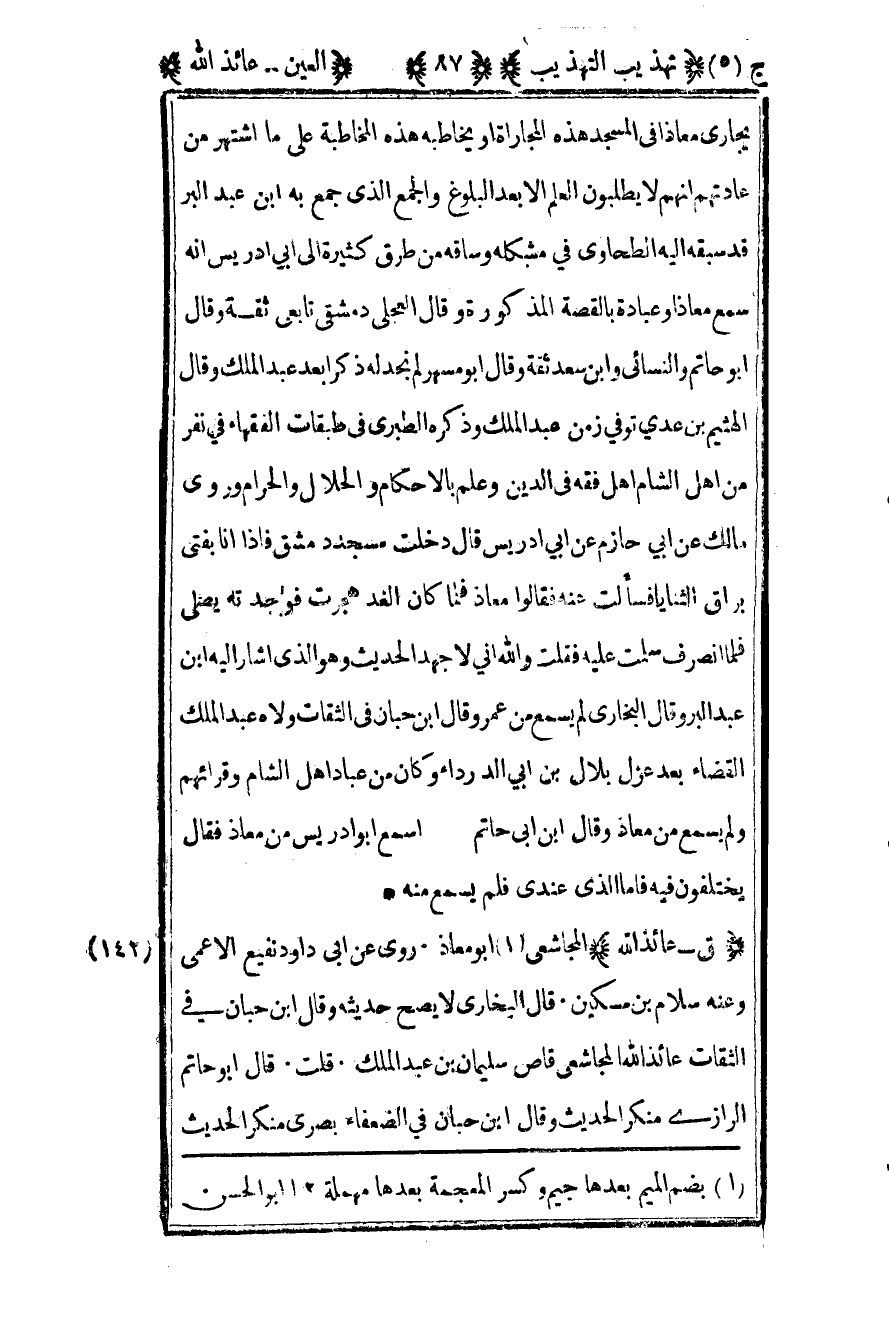 ج (٥) ﴿ تهذيب التهذيب ﴾ ﴿ ٨٧ ﴾ ﴿ العين .. عائذ الله ﴾
يجارى معاذا فى المسجد هذه المجاراة او يخاطبه هذه المخاطبة على ما اشتهر من
عادتهم انهم لا يطلبون العلم الا بعد البلوغ والجمع الذى جمع به ابن عبد البر
قد سبقه اليه الطحاوى في مشكله وساقه من طرق كثيرة الى ابي ادريس انه
سمع معاذا وعبادة بالقصة المذكورة وقال العجلى دمشقى تابعى ثقة وقال
ابو حاتم والنسائى وابن سعد ثقة وقال ابو مسهر لم نجد له ذكرا بعد عبد الملك وقال
الهثيم بن عدي توفي زمن عبد الملك وذكره الطبرى فى طبقات الفقهاء في نفر
من اهل الشام اهل فقه فى الدين وعلم بالاحكام والحلال والحرام وروى
مالك عن ابي حازم عن ابي ادريس قال دخلت مسجد دمشق فاذا انا بفتى
براق الثنايا فسألت عنه فقالوا معاذ فلما كان الغد هجرت فواجدته يصلى
فلما انصرف سلمت عليه فقلت والله اني لاجهد الحديث وهو الذى اشار اليه ابن
عبد البر وقال البخارى لم يسمع من عمر وقال ابن حبان فى الثقات ولاه عبد الملك
القضاء بعد عزل بلال بن ابي الدرداء وكان من عباد اهل الشام وقرائهم
ولم يسمع من معاذ وقال ابن ابى حاتم اسمع ابو ادريس من معاذ فقال
يختلفون فيه فاما الذى عندى فلم يسمع منه ●
﴿ ق – عائذ الله ﴾ المجاشعى (١) ابو معاذ . روى عن ابى داود نفيع الاعمى (١٤٢)
وعنه سلام بن مسكين . قال البخارى لا يصح حديثه وقال ابن حبان في
الثقات عائذ الله المجاشعى قاص سليمان بن عبد الملك . قلت . قال ابو حاتم
الرازى منكر الحديث وقال ابن حبان في الضعفاء بصرى منكر الحديث
(١) بضم الميم بعدها جيم وكسر المعجمة بعدها مهملة ١٢ ابو الحسن .